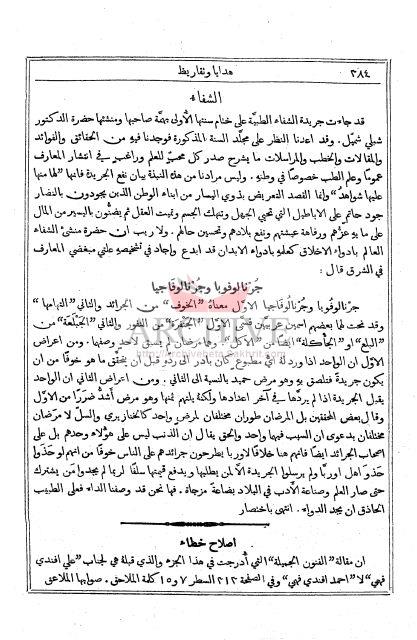 ٣٨٤
هدايا وتقاريظ
الشفاء
قد جاءت جريدة الشفاء الطبيَّة على ختام سنتها الأولى بهمَّة صاحبها ومنشئها حضرة الدكتور
شبلي شميّل. وقد اعدنا النظر على مجلَّد السنة المذكورة فوجدنا فيهِ من الحقائق والفوائد
والمقالات والخطب والمراسلات ما يشرح صدر كل محبّ للعلم وراغب في انتشار المعارف
عمومًا وعلم الطب خصوصًا في وطنهِ. وليس مرادنا من هذه النبذة بيان نفع الجريدة فانها "لها منها
عليها شواهد" وانما القصد التعريض بذوي اليسار من ابناء الوطن الذين يجودون بالنضار
جود حاتم على الاباطيل التي تحيي الجهل وتنهك الجسم وتميت العقل ثم يضنُّون باليسير من المال
على ما بهِ عزُّهم ورفاهة عيشتهم ونفع بلادهم وتحسين حالهم. ولا ريب ان حضرة منشئ الشفاء
العالم بادواء الاخلاق كعلمهِ بادواء الابدان قد ابدع واجاد في تشخيصهِ علتي مبغضي المعارف
في الشرق قال:
جُرْنالوفوبا وجُرْنالوفاجيا
جرنالوفوبا وجُرْنالوفاجيا الاوَّل معناهُ "الخوف" من الجرائد والثاني "التهامها"
وقد نحت لها بعضهم اسمين عربيين فسمَّى الاوَّل "الجنفرة" من النفور والثاني "الجبلعة" من
"البلع" او "الجأكلة" ايضًا من "الأكل". وهما مرضان لم يسبق لاحد وصفها. ومن اعراض
الاوَّل ان الواحد اذا وردلهُ ايُّ مطبوع كان بادر الى ردّهِ قبل ان يتحقَّق ما هو خوفًا من ان
يكون جريدة فتلصق بهِ وهو مرض حميد بالنسبة الى الثاني. ومن اعراض الثاني ان الواحد
يقبل الجريدة اذا لم يردَّها في آخر اعدادها ولكنهُ يلتهم ثمنها وهو مرض أشدُّ ضررًا من الاوَّل
وقال بعض المحققين بل المرضان طوران مختلفان لمرض واحد كالخنازيري والسلّ لا مرضان
مختلفان بدعوى ان السبب فيهما واحد والحق يقال ان الذنب ليس على هؤلاء وحدهم بل على
اصحاب الجرائد ايضًا فانهم هنا خلافًا لاوربا يطرحون جرائدهم على الناس خوفًا من انهم لو حَذَوا
حَذْو اهل اوربا ولم يرسلوا الجريدة الَّا لمن يطلبها ويدفع قيمتها سلفًا لربما لم يجدوا من يشترك
حتى صار العلم وصناعة الأدب في البلاد بضاعة مزجاة. فها نحن قد وصفنا الداء فعلى الطبيب
الحاذق ان يجد الدواء. انتهى باختصار
اصلاح خطاء
ان مقالة "الفنون الجميلة" التي أُدرجت في هذا الجزء والذي قبلهُ هي لجناب "علي افندي
فهمي" لا "احمد افندي فهمي" وفي الصفحة ٢١٢ السطر ٧ و١٥ كلمة الملاحق. صوابها الملاعق
ARCHIVE